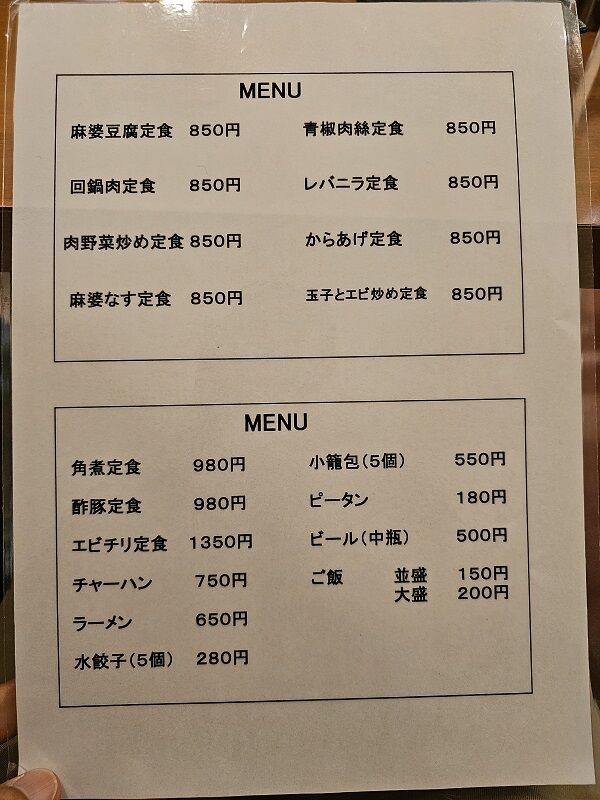 MENU
麻婆豆腐定食 850円 青椒肉絲定食 850円
回鍋肉定食 850円 レバニラ定食 850円
肉野菜炒め定食 850円 からあげ定食 850円
麻婆なす定食 850円 玉子とエビ炒め定食 850円
MENU
角煮定食 980円 小籠包(5個) 550円
酢豚定食 980円 ピータン 180円
エビチリ定食 1350円 ビール(中瓶) 500円
チャーハン 750円 ご飯 並盛 150円
大盛 200円
ラーメン 650円
水餃子(5個) 280円